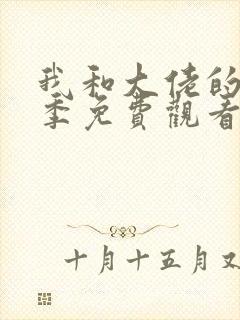 我和大佬的
季免費觀看
十月十五月又